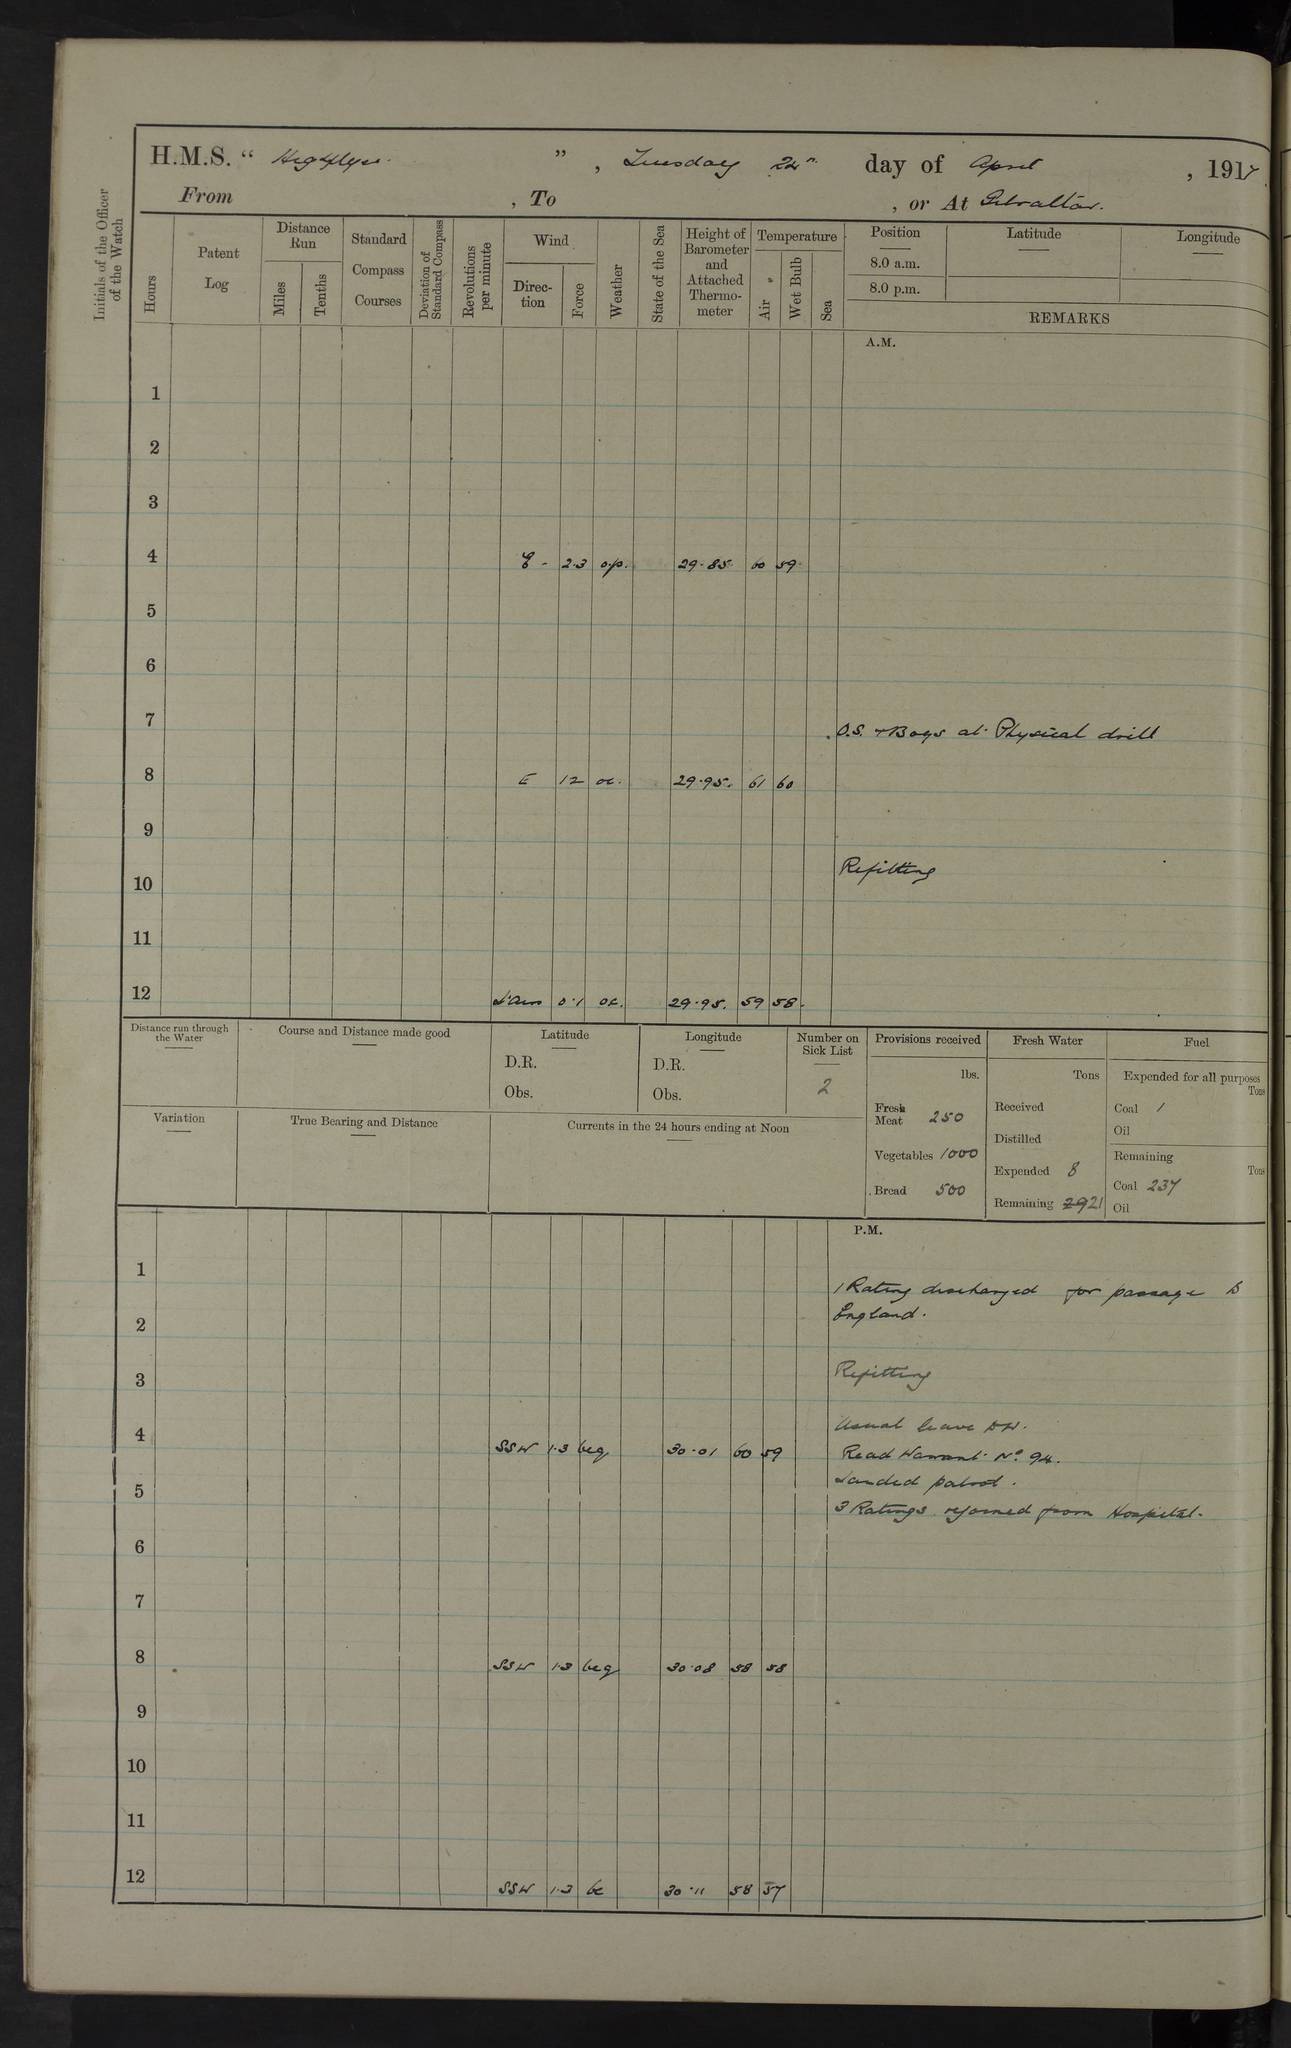 H.M.S. “ Highflyer. ” , Tuesday 24th day of April , 1917
From , To , or At Gibraltar.
Initials of the Officer of the Watch
Hours
Patent Log
Distance Run
Miles
Tenths
Standard Compass Courses
Deviation of Standard Compass
Revolutions per minute
Wind
Direction
Force
Weather
State of the Sea
Height of Barometer and Attached Thermometer
Temperature
Air
Wet Bulb
Sea
Position
8.0 a.m.
8.0 p.m.
Latitude
Longitude
REMARKS
A.M.
1
2
3
4 E - 2.3 o.p. 29.85 60 59
5
6
7 O.S. + Boys at Physical drill
8 E 12 oc. 29.95. 61 60
9
10 Refitting
11
12 L'Airs 0.1 oc. 29.95. 59 58.
Distance run through the Water
Course and Distance made good
Latitude
D.R.
Obs.
Longitude
D.R.
Obs.
Number on Sick List
2
Variation
True Bearing and Distance
Currents in the 24 hours ending at Noon
Provisions received
lbs.
Fresh Meat 250
Vegetables 1000
Bread 500
Fresh Water
Tons
Received
Distilled
Expended 8
Remaining 29 21
Fuel
Expended for all purposes
Tons
Coal 1
Oil
Remaining
Tons
Coal 237
Oil
P.M.
1 1 Rating discharged for passage to
England.
2
3 Refitting
Usual leave
4 SSW 1.3 bcq 30.01 60 59 Read Warrant No 94.
Landed patrol.
5 3 Ratings rejoined from Hospital.
6
7
8 SSW 1.3 bcq 30.08 58 58
9
10
11
12 SSW 1.3 bc 30.11 58 57